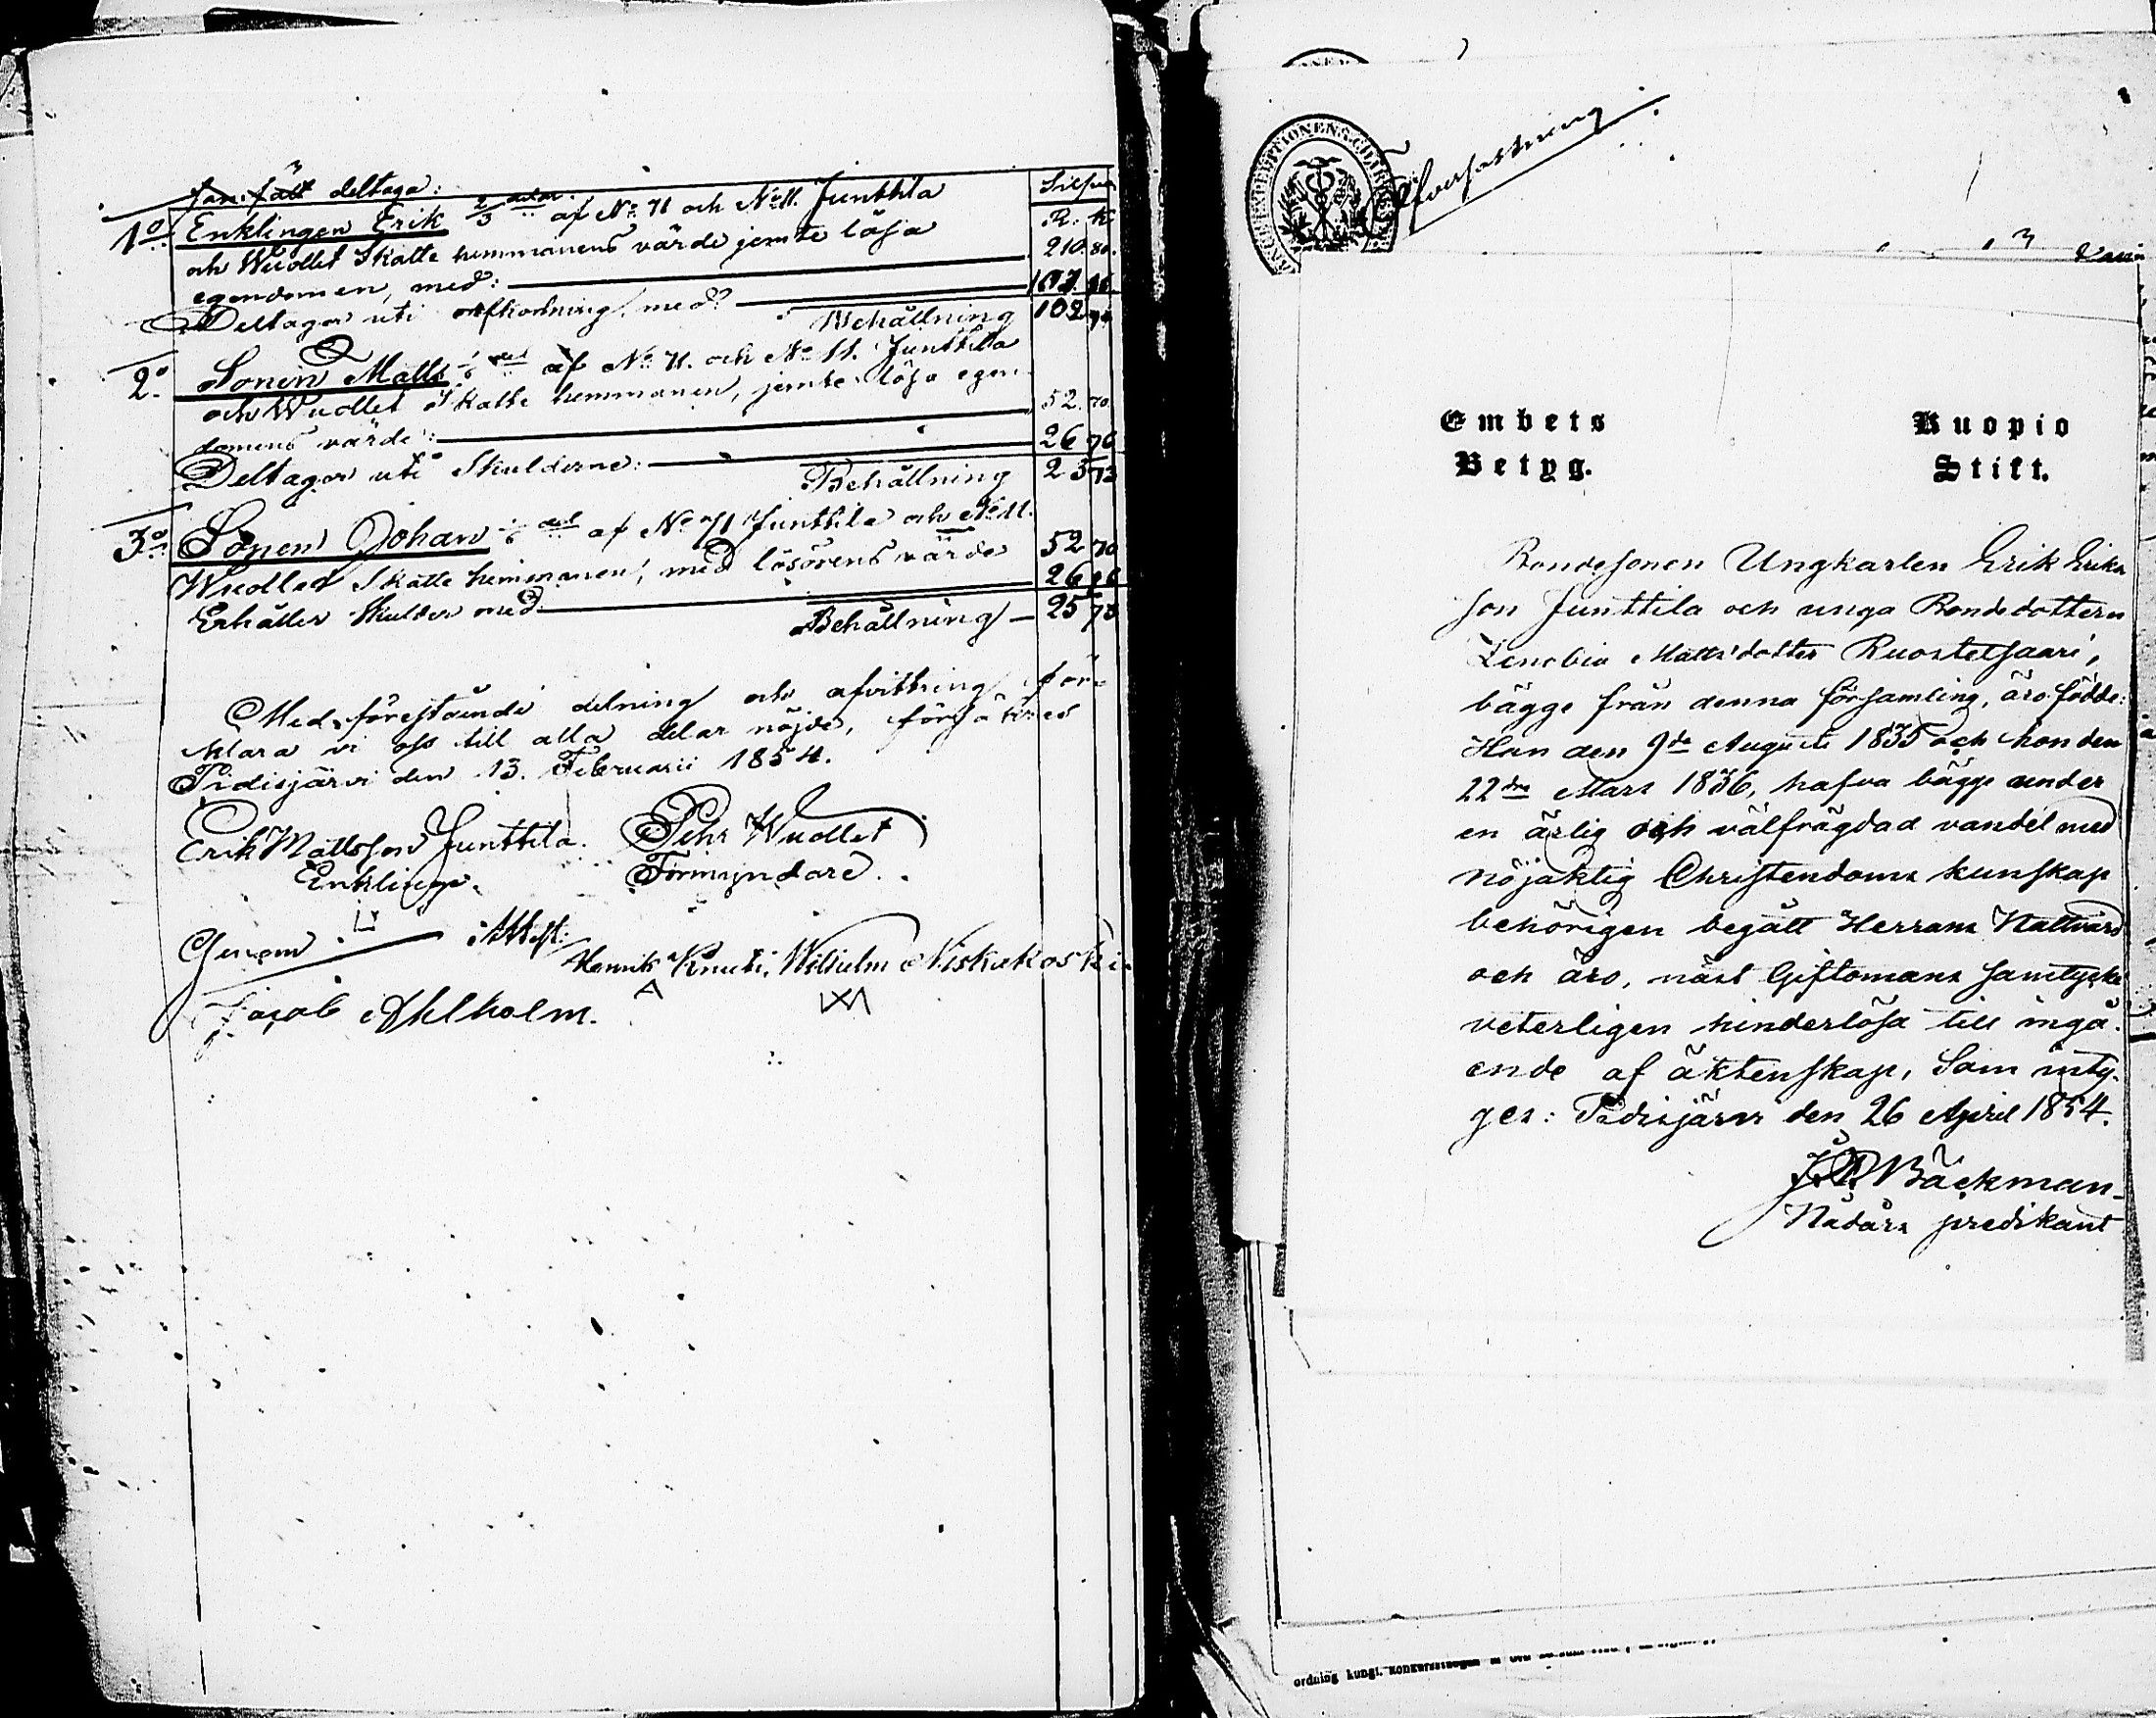 deltaga:
Silfver
1o Enklingen Erik 2/3 delar af No 71 och No 11. Junttila
R. K.
och Wuollet Skatte hemmanens värde jemte lösa
egendomen, med: 210. 80.
Deltager uti afkortning med 107.
Behållning 102
2o Sonen Matts 1/6 del af No 71. och No 11. Junttila
och Wuollet Skatte hemmanen, jemte lösa egen
domens värde: 52. 70.
Deltager uti Skulderne: 26
Behållning 25 73
3o Sonen Johan 1/6 del af No 71 Junttila och No 11.
Wuollet Skatte hemmanen, med lösörens värde 52 70
Erhåller Skulder med 26
Behållning 25 73
Med förestående delning och afvittring för-
klara vi oss till alla delar nöjde, försäkres
Pidisjärvi den 13. Februarii 1854.
Erik Mattsson Junttila. Pehr Wuollet
Enkling. Förmyndare.
Genom Attest:
Henrik Knuti, Wilhelm Niskakoski.
Jacob Ahlholm.
Öfversättning
Embets Kuopio
Betyg. Stift.
Bondesonen Ungkarlen Erik Eriks
son Junttila och unga Bondedottern
Zenobia Mattsdotter Ruostetsaari,
bägge från denna församling, äro födde:
Han den 9de Augusti 1835 och hon den
22dra Mars 1836, hafva bägge under
en ärlig och välfrägdad vandel med
nöjaktig Christendoms kunskap
behörigen begått Herrans Nattvard
och äro, näst Giftomans samtycke
veterligen hinderlösa till ingå-
ende af äktenskap, Som inty-
ges: Pidisjärvi den 26 April 1854.
Bäckman
Nådårs predikant
ordning kungl.